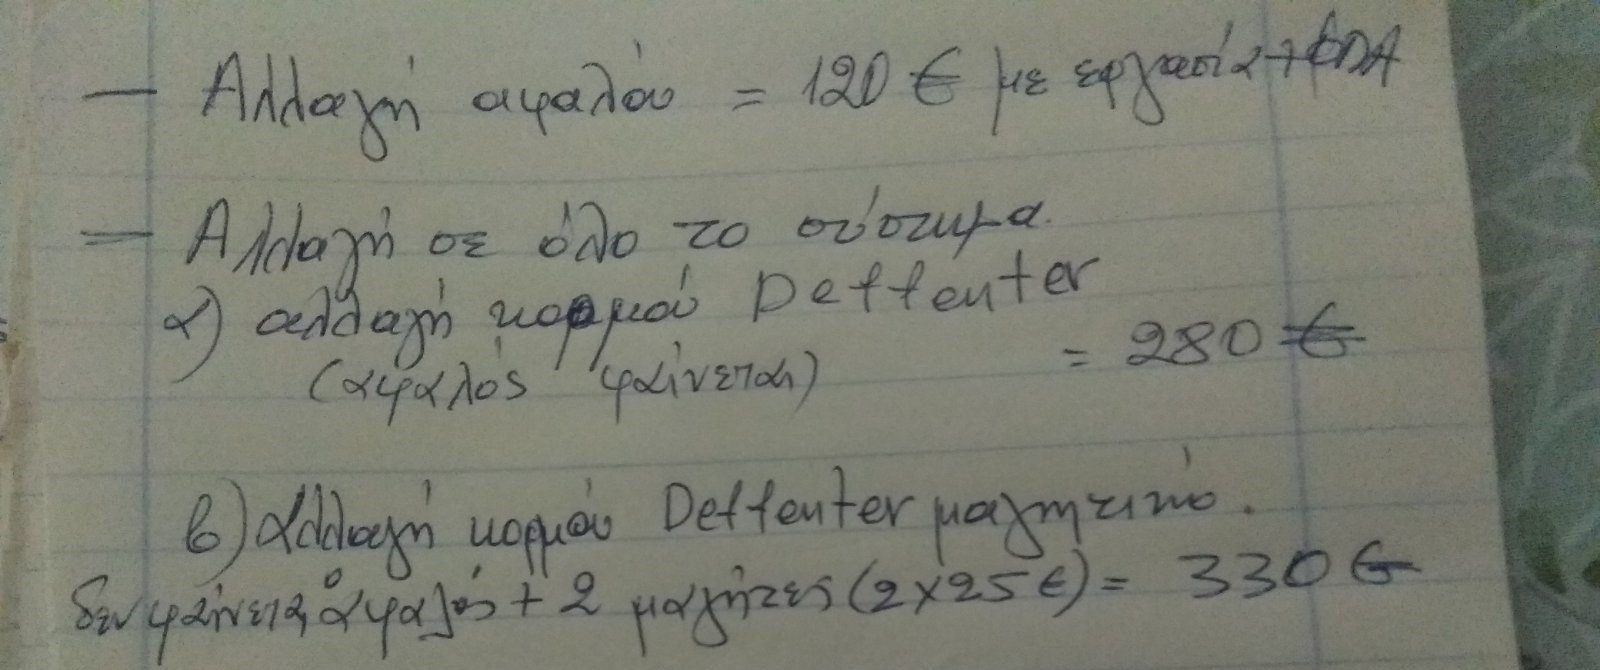 — Αλλαγή αφαλού = 120 € με εργασία + ΦΠΑ
— Αλλαγή σε όλο το σύστημα.
α) αλλαγή κορμού Deffenter
(αφαλός φαίνεται) = 280 €
β) αλλαγή κορμού Deffenter μαγητικό.
δεν φαίνεται ο αφαλός + 2 μαγήτες (2 x 25 €) = 330 €